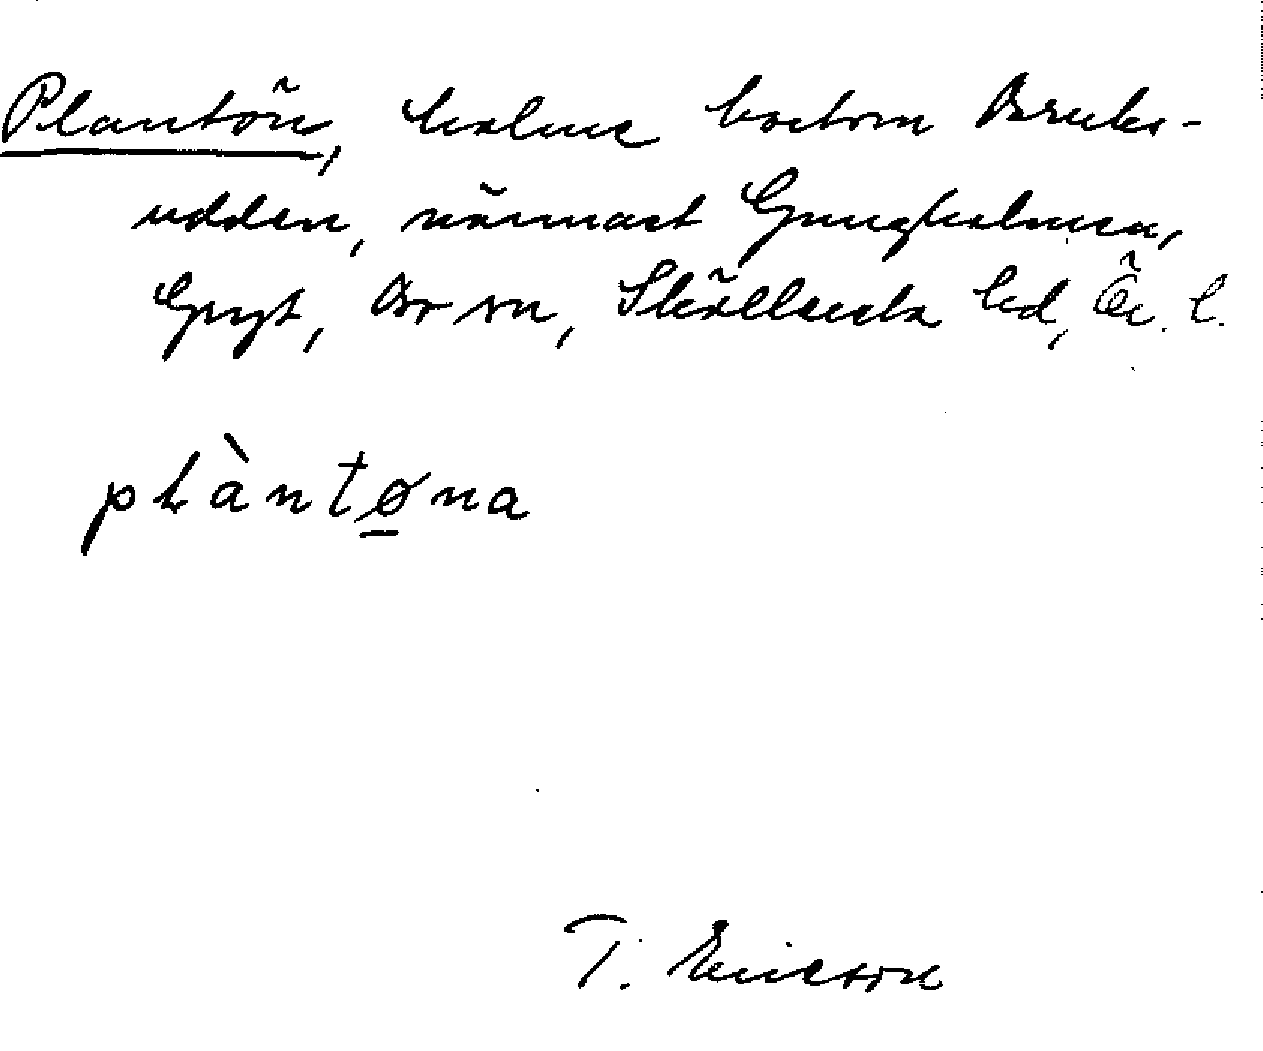 Plantön, holme bortom Bruks-
udden, närmast Gungholmen,
Gryt, Gryt sn, Skällviks hd, Ög. l.
plàntøna
T. Ericson